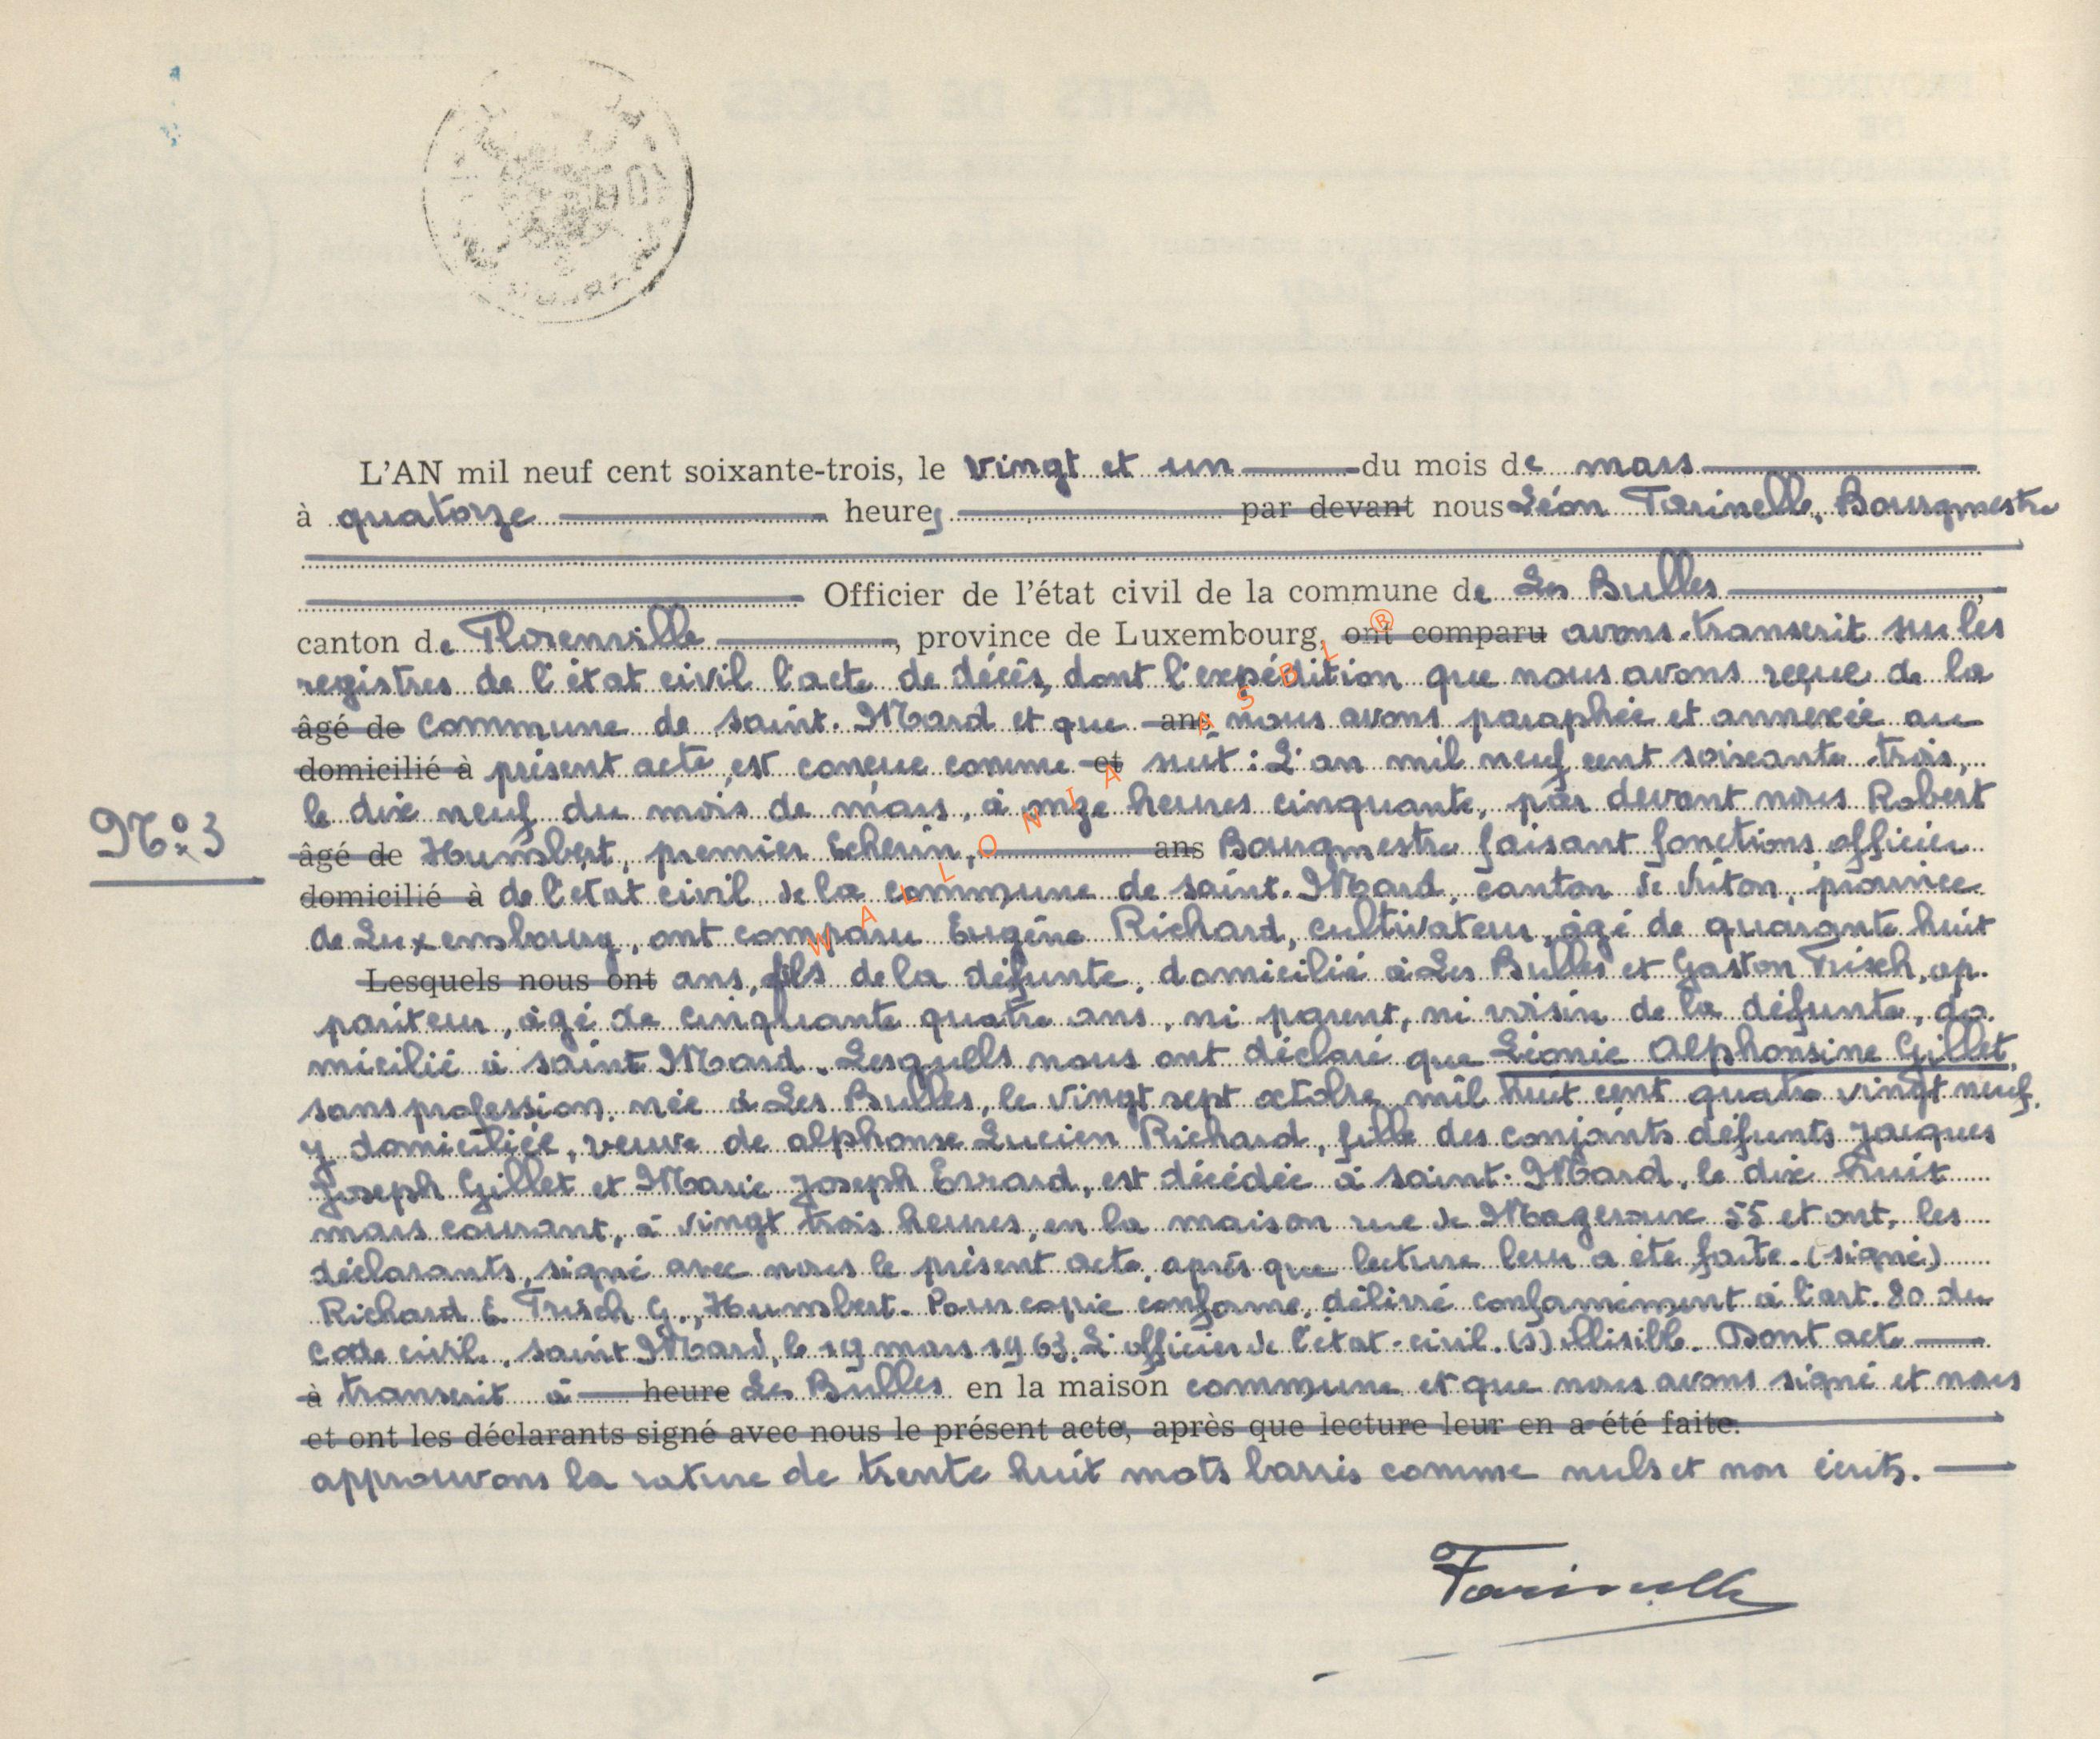 L'AN mil neuf cent soixante-trois, le vingt et un du mois de mars
à quatorze heures par devant nous Léon Farinelle, Bourgmestre
Officier de l'état civil de la commune de Les Bulles,
canton de Florenville, province de Luxembourg, ont comparu avons transcrit sur les
registres de l'état civil l'acte de décès, dont l'expédition que nous avons reçue de la
âgé de commune de Saint-Mard et que ans nous avons paraphée et annexée au
domicilié à présent acte, est conçue comme et suit : L'an mil neuf cent soixante-trois,
N° 3
le dix neuf du mois de mars, à onze heures cinquante, par devant nous Robert
âgé de Humbert, premier Echevin, ans Bourgmestre faisant fonctions officier
domicilié à de l'état civil de la commune de Saint-Mard, canton de Virton, province
de Luxembourg, ont comparu Eugène Richard, cultivateur, âgé de quarante huit
Lesquels nous ont ans, fils de la défunte, domicilié à Les Bulles et Gaston Trisch, ap-
pariteur, âgé de cinquante quatre ans, ni parent, ni voisin de la défunte, do-
micilié à Saint Mard. Lesquels nous ont déclaré que Léonie Alphonsine Gillet,
sans profession, née à Les Bulles, le vingt sept octobre mil huit cent quatre vingt neuf,
y domiciliée, veuve de Alphonse Lucien Richard, fille des conjoints défunts Jacques
Joseph Gillet et Marie Joseph Evrard, est décédée à Saint-Mard, le dix huit
mars courant, à vingt trois heures, en la maison rue de Mageroux 55 et ont, les
déclarants, signé avec nous le présent acte, après que lecture leur a été faite. (signé)
Richard E. Trisch G., Humbert. Pour copie conforme, délivré conformément à l'art. 80 du
Code civil. Saint Mard, le 19 mars 1963. L'officier de l'état-civil. (s) illisible. Dont acte
à transcrit à heure Les Bulles en la maison commune et que nous avons signé et nous
et ont les déclarants signé avec nous le présent acte, après que lecture leur en a été faite.
approuvons la rature de trente huit mots barrés comme nuls et non écrits.
Farinelle
WALLONIA ASBL ®